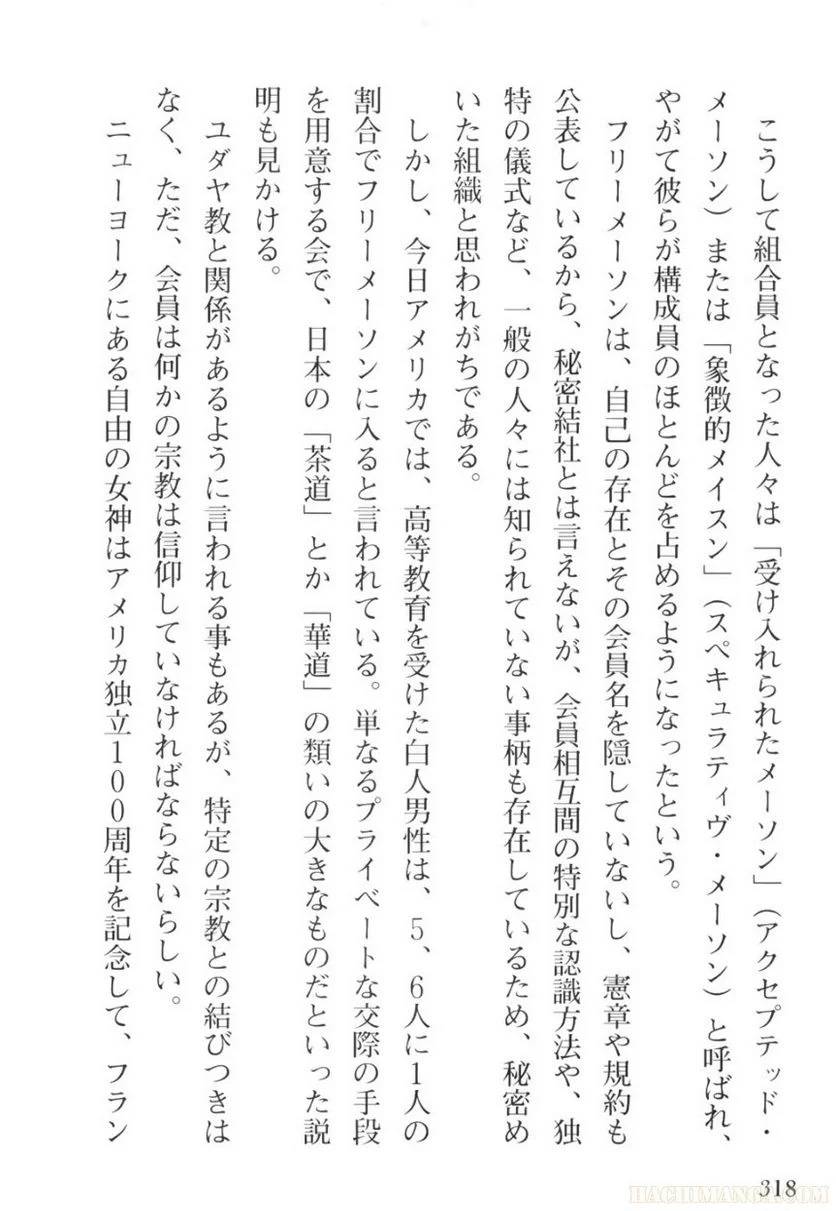 こうして組合員となった人々は「受け入れられたメーソン」（アクセプテッド・
メーソン）または「象徴的メイスン」（スペキュラティヴ・メーソン）と呼ばれ、
やがて彼らが構成員のほとんどを占めるようになったという。
フリーメーソンは、自己の存在とその会員名を隠していないし、憲章や規約も
公表しているから、秘密結社とは言えないが、会員相互間の特別な認識方法や、独
特の儀式など、一般の人々には知られていない事柄も存在しているため、秘密め
いた組織と思われがちである。
しかし、今日アメリカでは、高等教育を受けた白人男性は、5、6人に1人の
割合でフリーメーソンに入ると言われている。単なるプライベートな交際の手段
を用意する会で、日本の「茶道」とか「華道」の類いの大きなものだといった説
明も見かける。
ユダヤ教と関係があるように言われる事もあるが、特定の宗教との結びつきは
なく、ただ、会員は何かの宗教は信仰していなければならないらしい。
ニューヨークにある自由の女神はアメリカ独立100周年を記念して、フラン
318
HACHIMANGA.COM